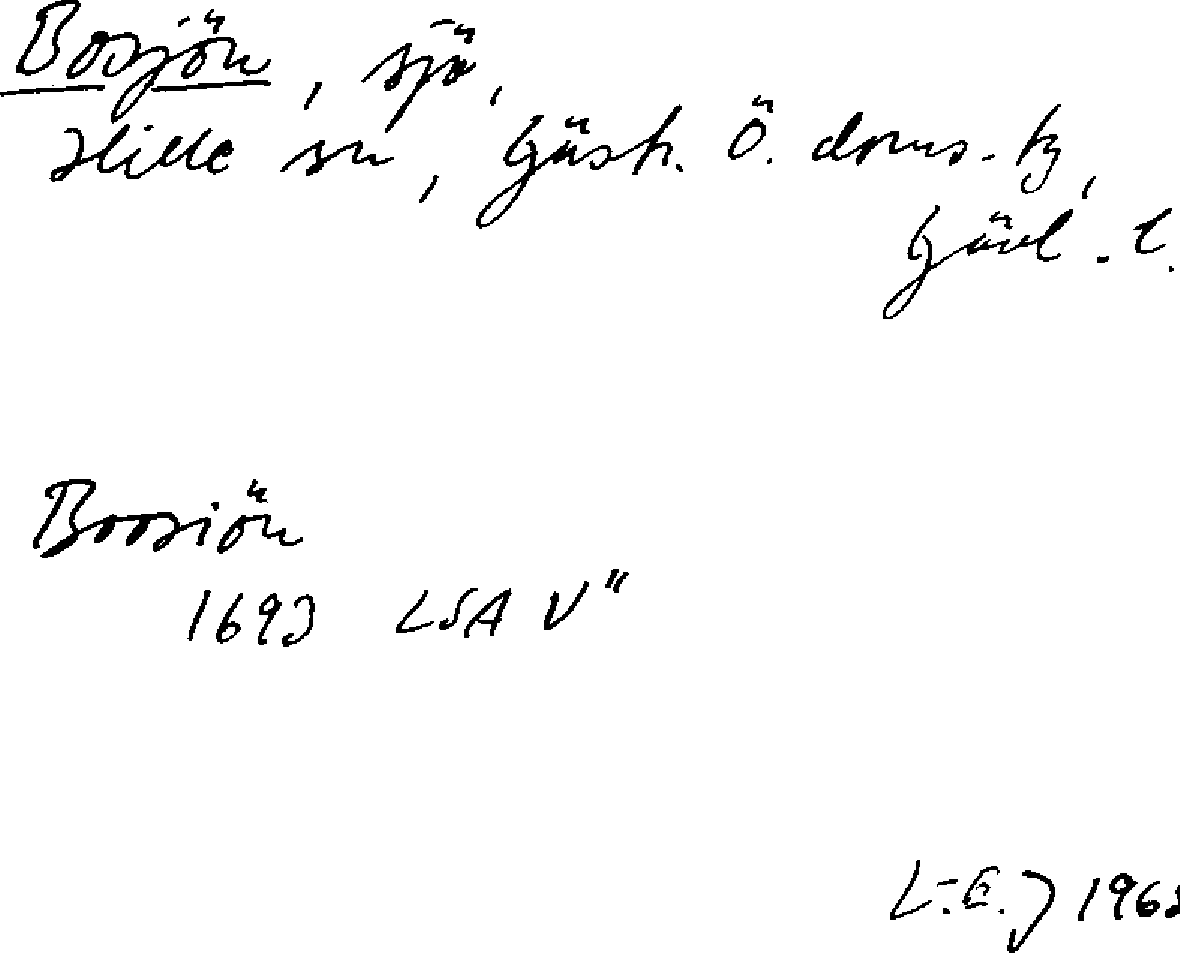 Bosjön, sjö,
Hille sn, Gästr. Ö. doms.
Gävl. l.
Boosiön
1693 LSA V"
L.-E. J